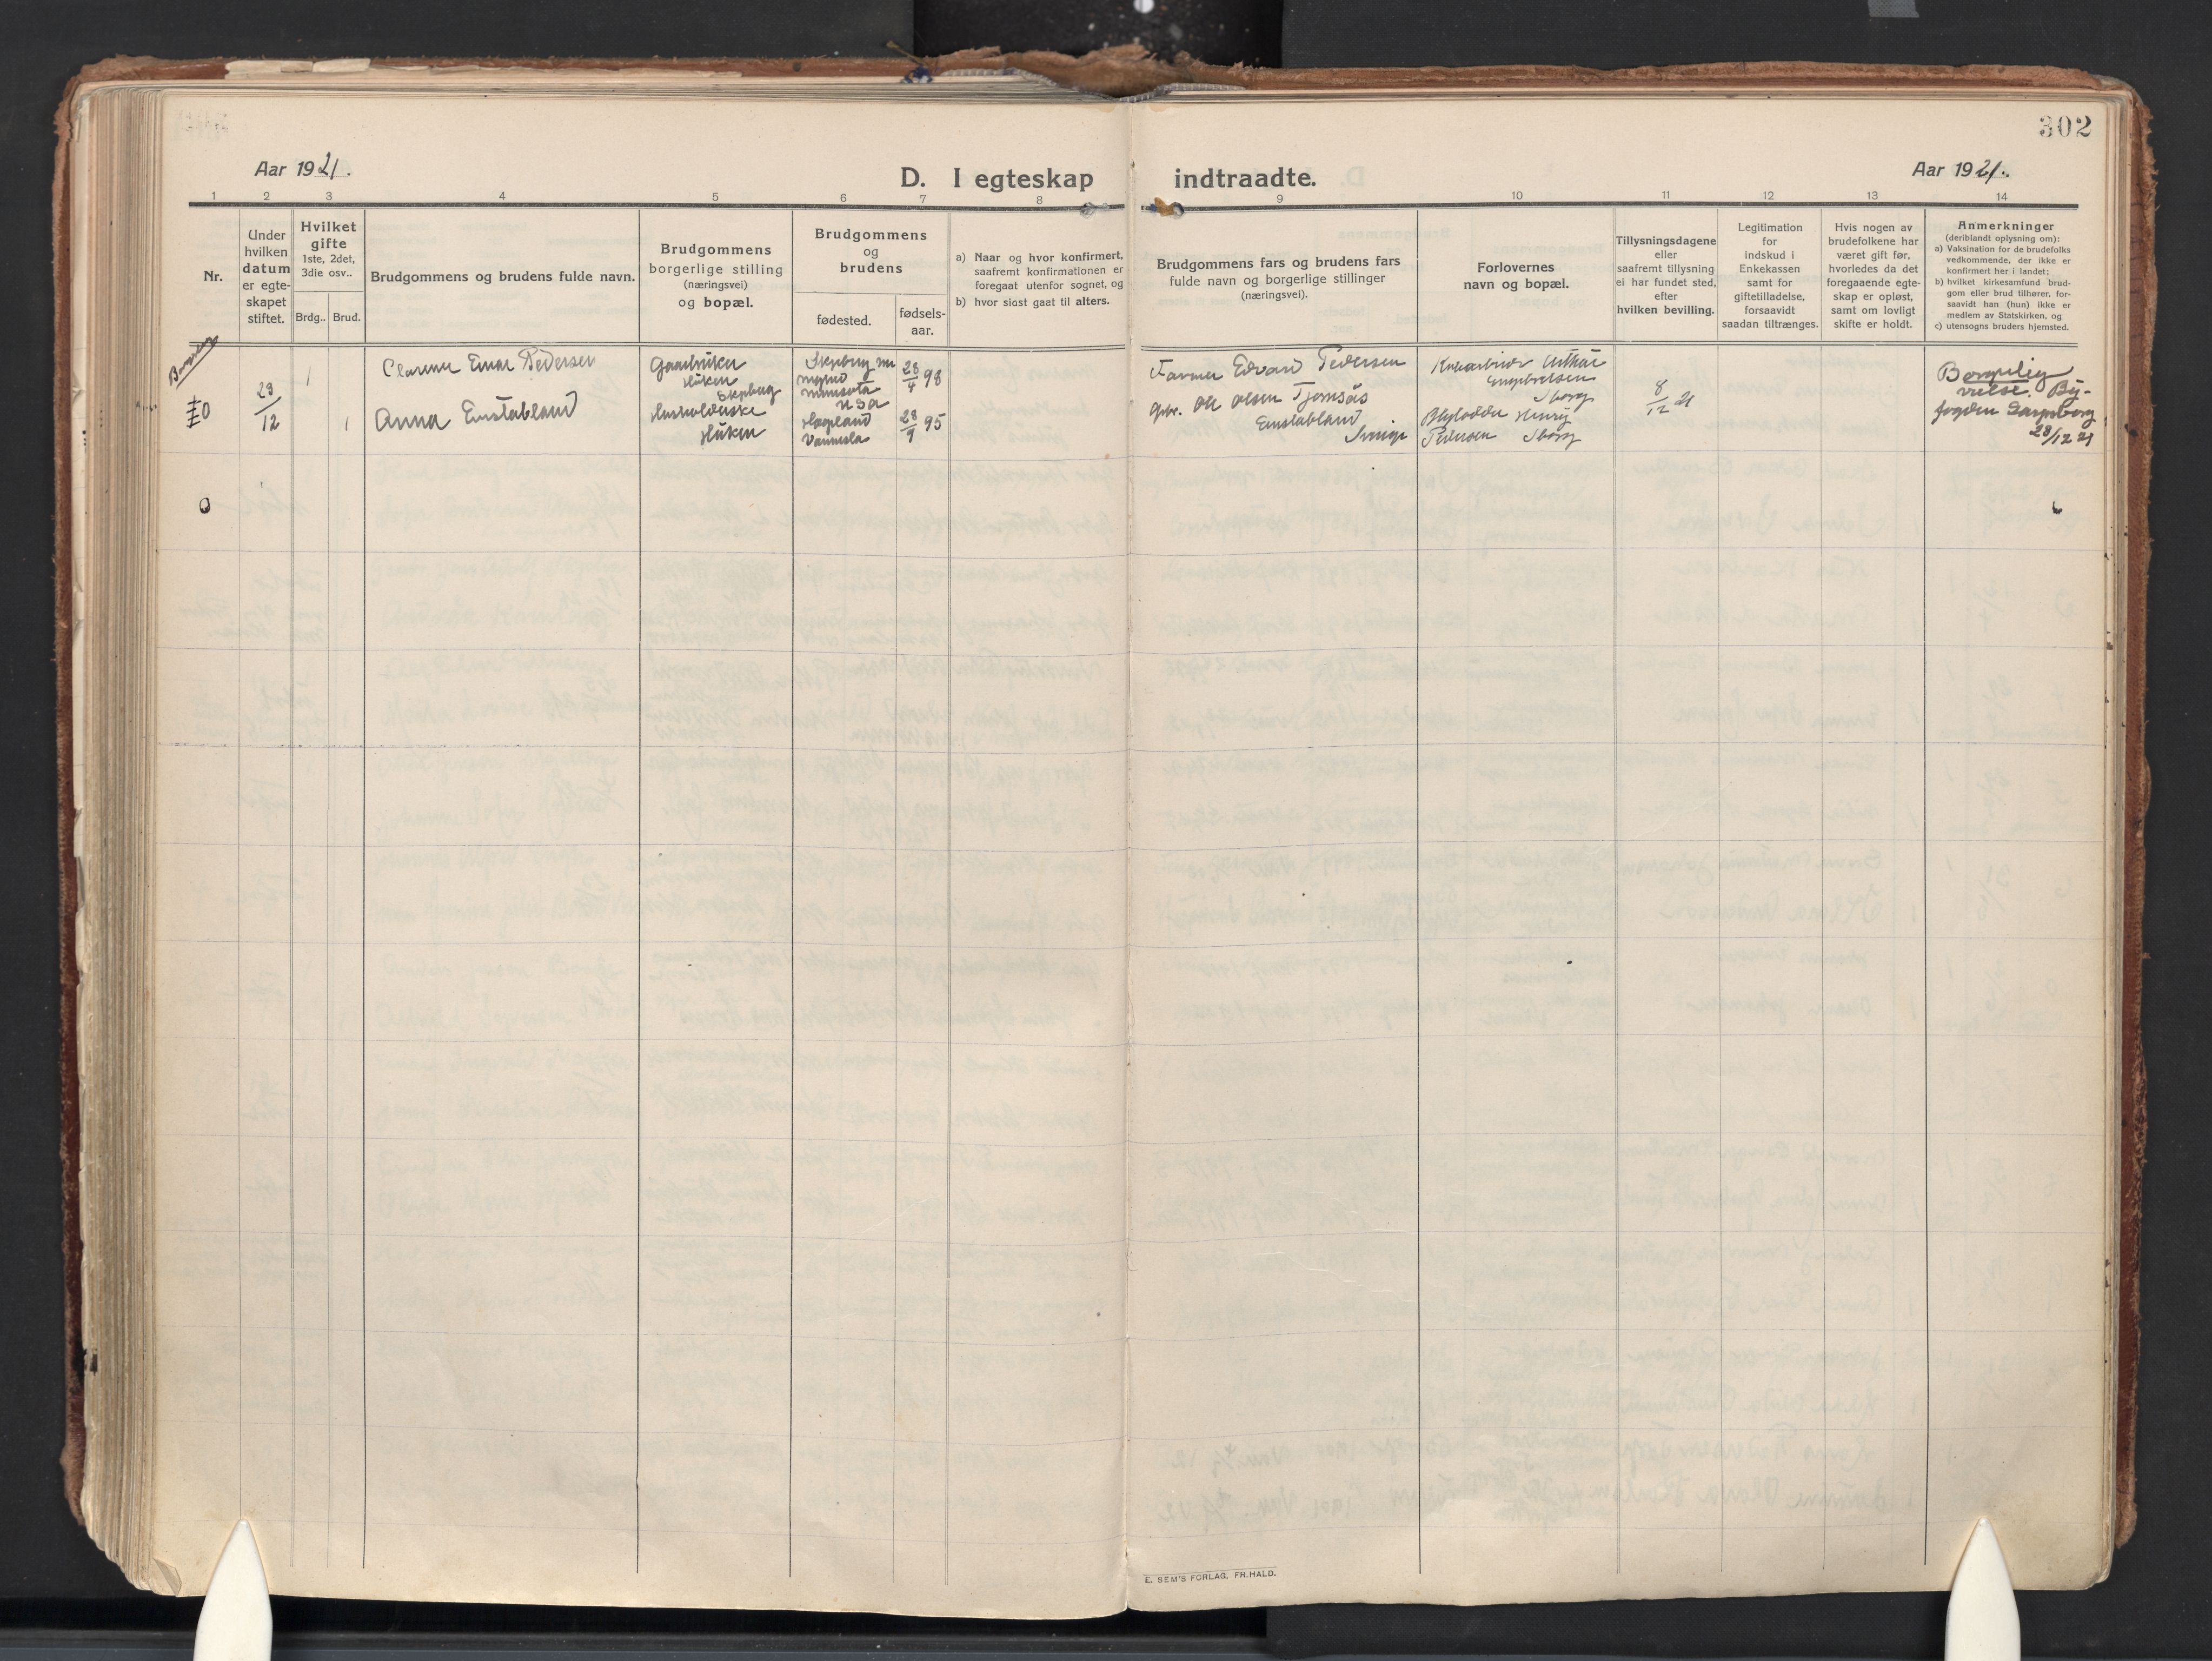 302
Aar 1921.
D. I egteskap indtraadte.
Aar 1921.
1 2 3 4 5 6 7 8 9 10 11 12 13 14
Nr.
Under
hvilken
datum
er egte-
skapet
stiftet.
Hvilket
gifte
1ste, 2det,
3die osv..
Brdg.. Brud.
Brudgommens og brudens fulde navn.
Brudgommens
borgerlige stilling
(næringsvei)
og bopæl.
Brudgommens
og
brudens
fødested.
fødsels-
aar.
a) Naar og hvor konfirmert,
saafremt konfirmationen er
foregaat utenfor sognet, og
b) hvor sidst gaat til alters.
Brudgommens fars og brudens fars
fulde navn og borgerlige stillinger
(næringsvei).
Forlovernes
navn og bopæl.
Tillysningsdagene
eller
saafremt tillysning
ei har fundet sted,
efter
hvilken bevilling.
Legitimation
for
indskud i
Enkekassen
samt for
giftetilladelse,
forsaavidt
saadan tiltrænges.
Hvis nogen av
brudefolkene har
været gift før,
hvorledes da det
foregaaende egte-
skap er opløst,
samt om lovligt
skifte er holdt.
Anmerkninger
(deriblandt oplysning om):
a) Vaksination for de brudefolks
vedkommende, der ikke er
konfirmert her i landet;
b) hvilket kirkesamfund brud-
gom eller brud tilhører, for-
saavidt han (hun) ikke er
medlem av Statskirken, og
c) utensogns bruders hjemsted.
28/12
1
Einar Pedersen
Skjeberg
Minnesota
USA
28/4 98
Farmer Edvard Pedersen
Engebretsen
Sborg
8/12 21
Borgerlig
vielse. By-
fogden Sarpsborg
28/12 21
1
Anna Einstabland
Vennesla
28/9 95
Ole Olsen
Einstabland
Henry
Pedersen Sborg
E. SEM'S FORLAG, FR.HALD.